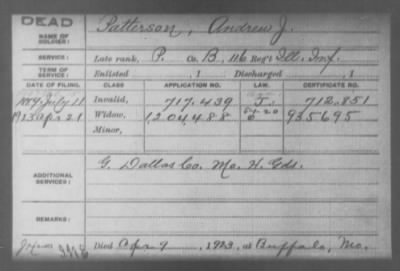 DEAD
NAME OF SOLDIER: Patterson, Andrew J.
SERVICE: Late rank, P. Co. B, 116 Reg't Ill. Inf.
TERM OF SERVICE: Enlisted , 1 Discharged , 1
DATE OF FILING. CLASS APPLICATION NO. LAW. CERTIFICATE NO.
1889 July 11 Invalid, 717.439 J. 712.851
1923 Apr 21 Widow, 1204488 935695
Minor,
ADDITIONAL SERVICES: G. Dallas Co. Mo. H. Gds.
REMARKS:
Died Apr 9, 1923, at Buffalo, Mo.